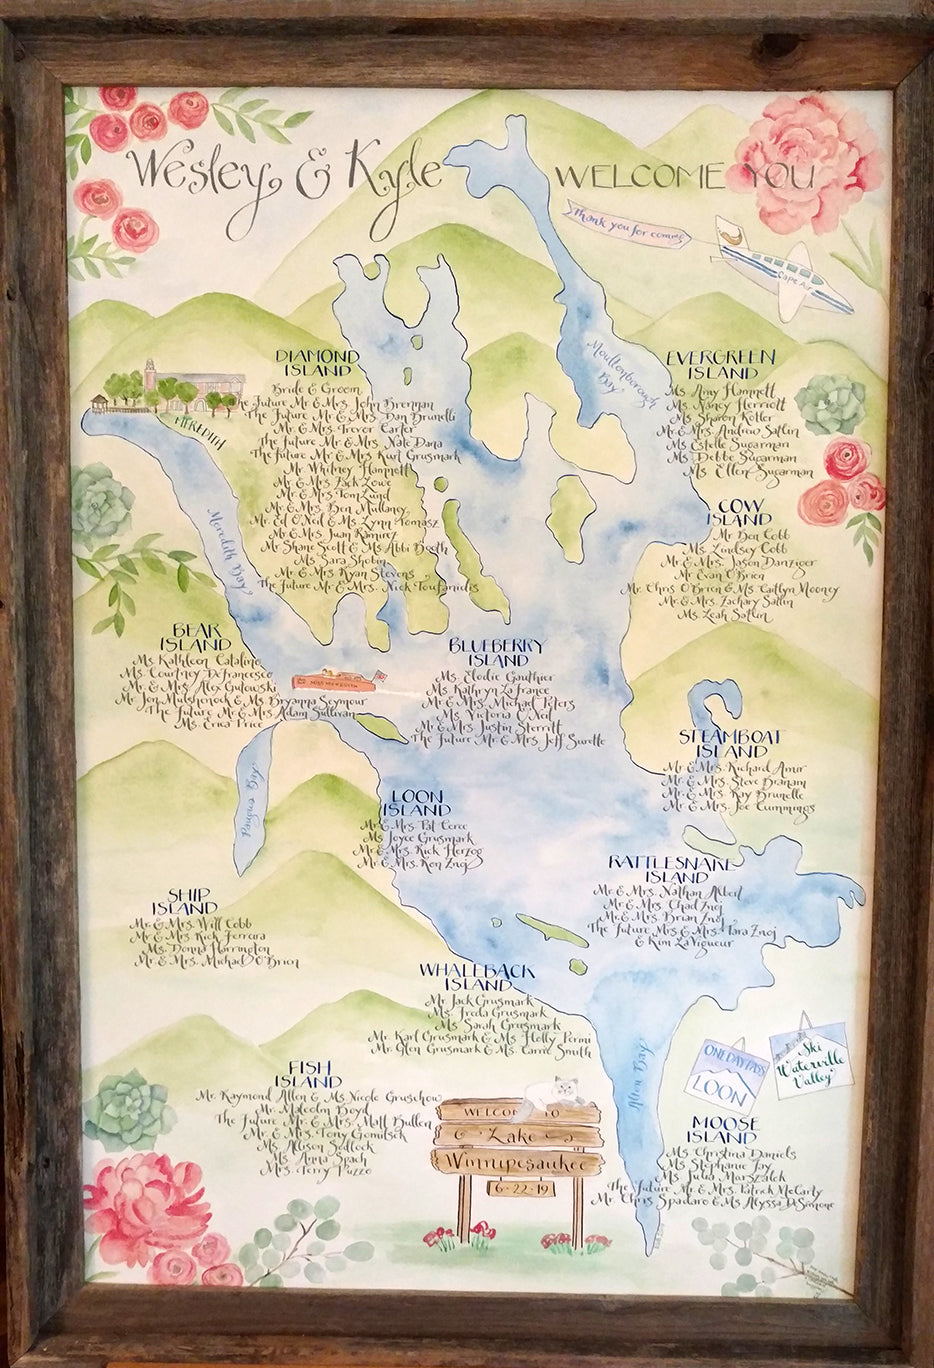 Wesley & Kyle
WELCOME YOU
Thank you for coming
Cape Air
Moultonborough
Bay
DIAMOND
ISLAND
Bride & Groom
The Future Mr & Mrs. John Brennan
The Future Mr & Mrs. Dan Brunelli
Mr & Mrs. Trevor Carter
The future Mr & Mrs. Nate Dana
The future Mr & Mrs Kurt Grusmark
Mr Whitney Hamnett
Mr & Mrs Zack Lowe
Mr & Mrs Tom Lund
Mr & Mrs Ben Mullaney
Mr. Ed O'Neil & Ms. Lynn Tomasz
Mr & Mrs Juan Ramirez
Mr Shane Scott & Ms Abbi Booth
Ms Sara Shobin
Mr & Mrs Ryan Stevens
The future Mr & Mrs. Nick Toufanidis
EVERGREEN
ISLAND
Ms Amy Hamnett
Ms. Nancy Herriott
Ms Sharon Kotler
Mr & Mrs. Andrew Satlin
Ms Estelle Sugarman
Ms Debbe Sugarman
Ms. Ellen Sugarman
MEREDITH
Meredith Bay
COW
ISLAND
Mr Ben Cobb
Ms. Lindsey Cobb
Mr & Mrs. Jason Danziger
Mr Evan O'Brien
Mr. Chris O'Brien & Ms Caitlyn Mooney
Mr & Mrs. Zachary Satlin
Ms. Leah Satlin
BEAR
ISLAND
Ms Kathleen Catalino
Ms. Courtney DeFrancesco
Mr & Mrs Alex Gutowski
Mr Jon Mulshenock & Ms Bryanna Seymour
The Future Mr & Mrs Adam Sullivan
Ms. Erica Price
MISS MEREDITH
BLUEBERRY
ISLAND
Ms. Elodie Gauthier
Ms Kathryn LaFrance
Mr & Mrs. Michael Peters
Ms. Victoria O'Neil
Mr & Mrs Justin Sterritt
The Future Mr & Mrs. Jeff Surette
STEAMBOAT
ISLAND
Mr & Mrs. Richard Amir
Mr & Mrs. Steve Branam
Mr & Mrs. Ray Brunelle
Mr & Mrs. Joe Cummings
Paugus Bay
LOON
ISLAND
Mr & Mrs. Pat Cerce
Ms Joyce Grusmark
Mr & Mrs. Rick Herzog
Mr & Mrs. Ron Znoj
RATTLESNAKE
ISLAND
Mr & Mrs. Nathan Albert
Mr & Mrs. Chad Znoj
Mr & Mrs Brian Znoj
The future Mrs & Mrs. Tara Znoj
& Kim LaVigueur
SHIP
ISLAND
Mr & Mrs. Will Cobb
Mr & Mrs Rick Ferrera
Ms. Donna Harrington
Mr & Mrs. Michael O'Brien
WHALEBACK
ISLAND
Mr Jack Grusmark
Ms. Freda Grusmark
Ms Sarah Grusmark
Mr. Karl Grusmark & Ms Holly Permi
Mr. Glen Grusmark & Ms. Carrie Smith
Alton Bay
ONE DAY PASS
LOON
Ski
Waterville
Valley
FISH
ISLAND
Mr. Raymond Allen & Ms Nicole Gruschow
Mr. Malcolm Boyd
The future Mr & Mrs. Matt Bullen
Mr & Mrs. Tony Gomilsek
Ms Allison Sedlock
Ms Anna Spach
Mrs. Terry Puzzo
WELCOME TO
Lake
Winnipesaukee
6-22-19
MOOSE
ISLAND
Ms Christina Daniels
Ms Stephanie Jay
Ms Julia Marszalek
The future Mr & Mrs. Patrick McCarty
Mr. Chris Spadaro & Ms Alyssa DeSimone